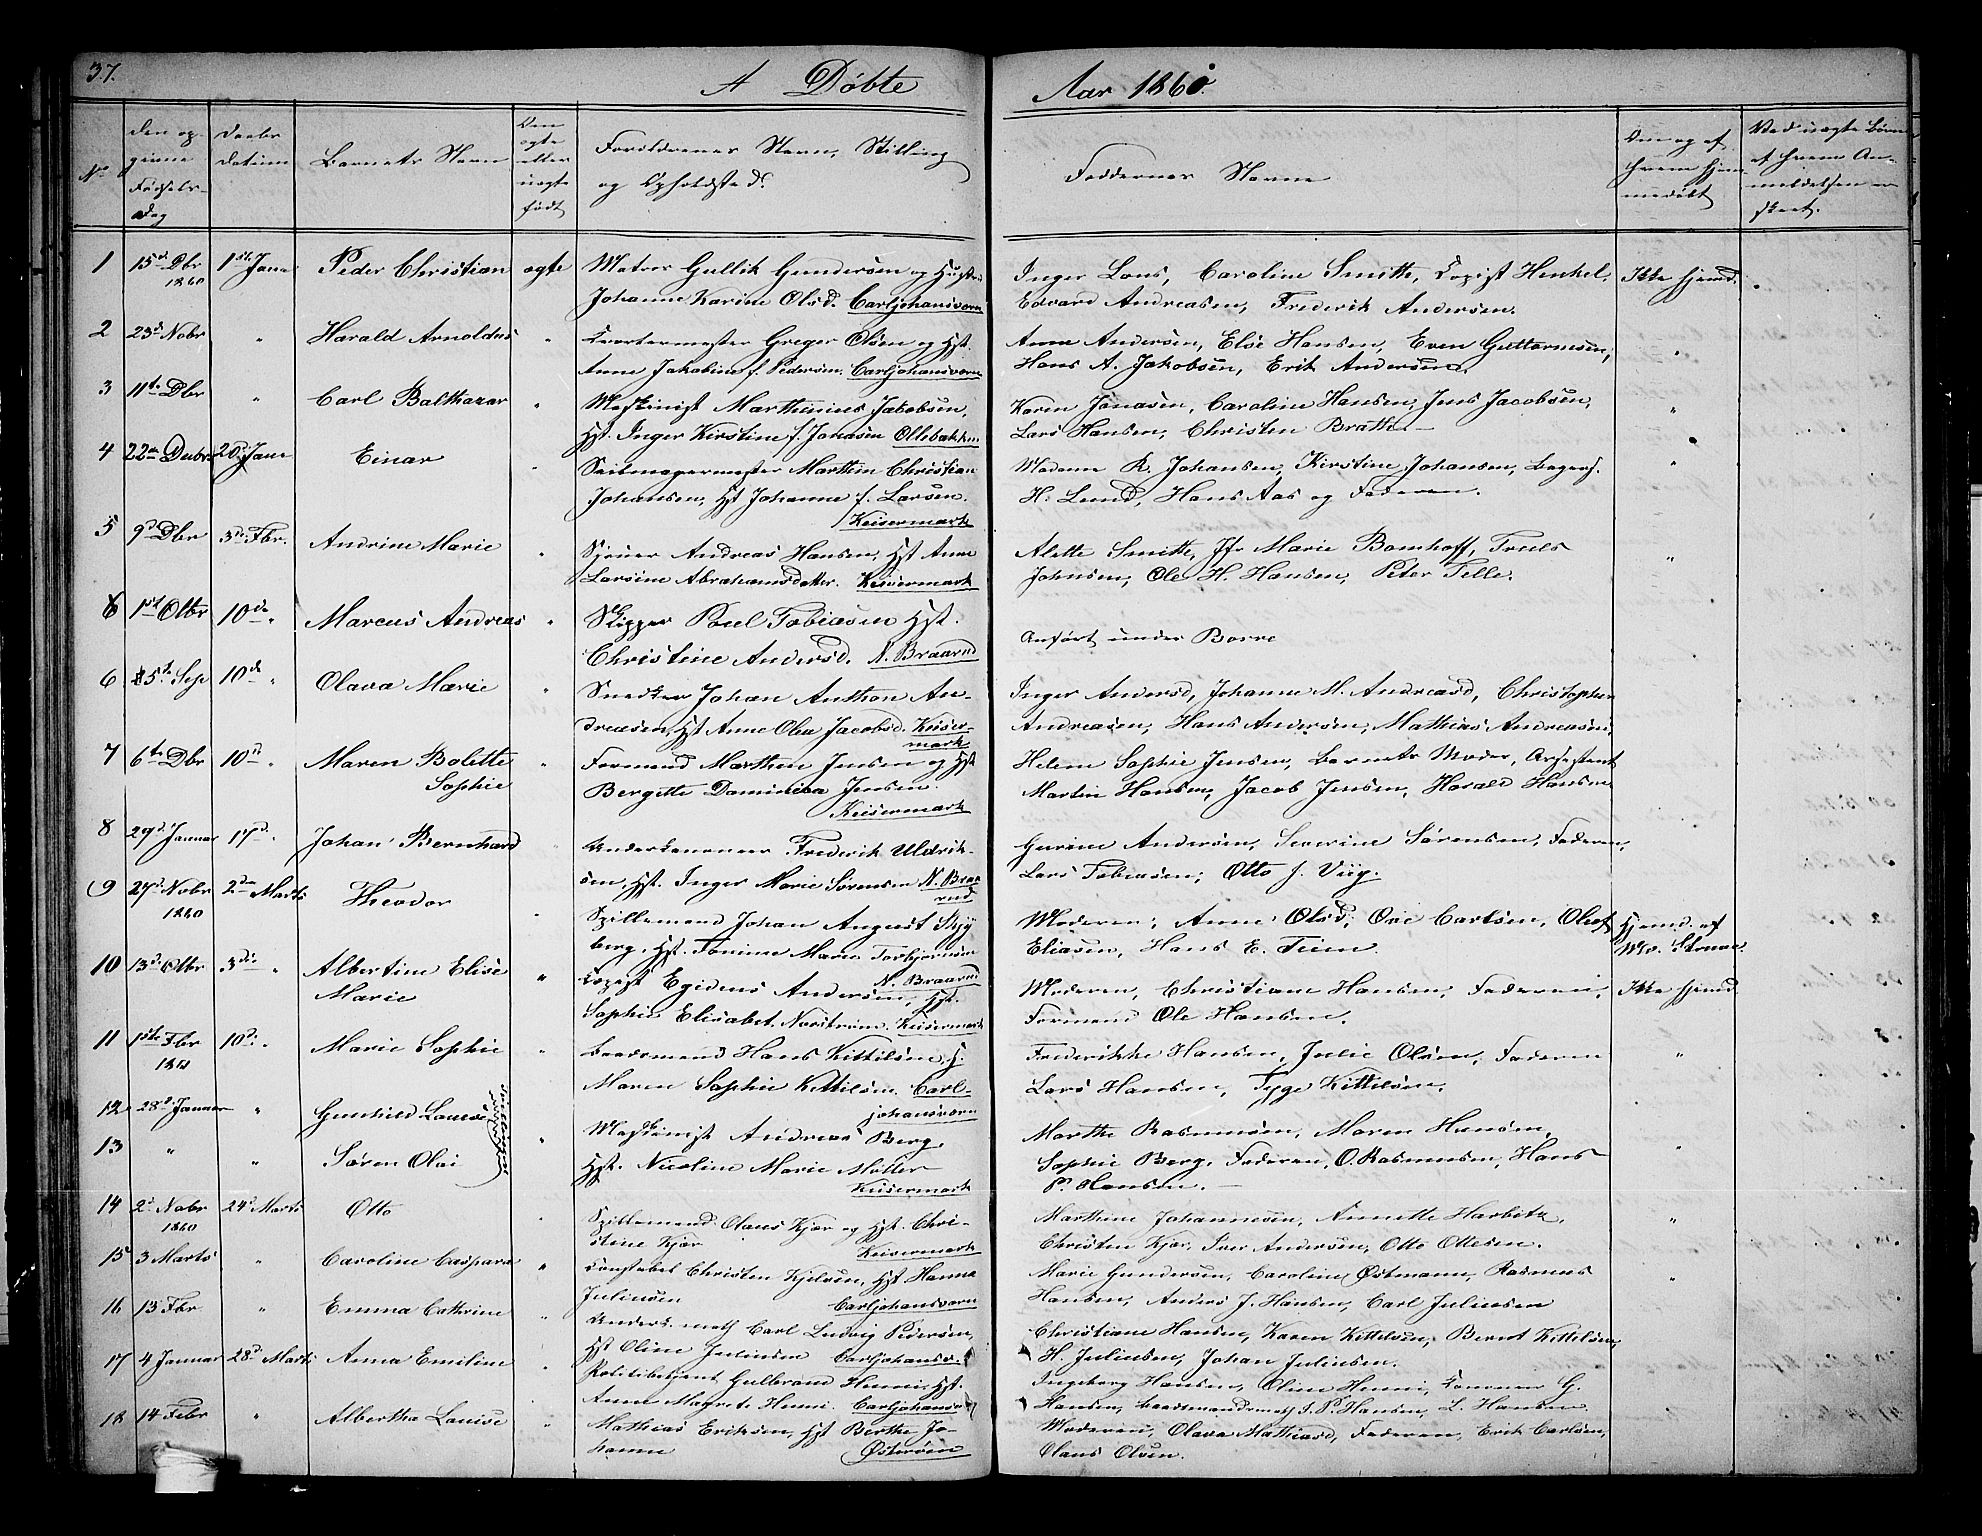 37.
A Døbte
Aar 1860.
No
Den op-
givne
Fødsels-
Dag
Daabs
Datum
Barnets Navn
Den
ægte
eller
uægte
født
Forældrenes Navn, Stilling
og Opholdsted.
Faddernes Navne
Om og af
hvem hjem-
medøbt
Ved uægte Børn
af hvem An-
meldelsen er
skeet.
1 15de Dbr 1ste Janr Peder Christian ægte Matros Gullik Gundersen og Hustru
1860
Johanne Karine Olsd. Carljohansværn
Inger Lons, Caroline Smitte, Copist Henkel,
Edvard Andreasen, Frederik Andersen.
Ikke hjemd.
2 23de Nobr " Harald Arnoldus " Qvartermester Greger Olsen og Hst.
Anne Jakobine f. Pedersen. Carljohansværn
Anne Andersen, Else Hansen, Even Guttormsen,
Hans A. Jakobsen, Erik Andersen.
"
3 11te Dbr " Carl Balthazar " Maskinist Marthinius Jakobsen,
Hst. Inger Kirstine f. Jonasen Ollebakken
Karen Jonasen, Caroline Hansen, Jens Jacobsen,
Lars Hansen, Christen Bratti—
"
4 22de Decbr 20de Janr Einar " Seilmagermester Marthin Christian
Johansen, Hst Johanne f. Larsen.
Keisermark
Madame K. Johansen, Kirstine Johansen, Bagers.
H. Lund, Hans Aas og Faderen.
"
5 9de Dbr 3de Fbr. Andrine Marie " Hst Anne
Larsine Abrahamsdatter. Keisermark
Alette Smitte, Jfr Marie Bomhoff, Truls
Johnsen, Ole H. Hansen, Peter Telle.
"
6 1ste Otbr 10de " Marcus Andreas " Skipper Poul Tobiasen Hst.
Christine Andersd. N. Braarud
Anført under Borre
6 15te Sep 10de " Olava Marie " Snedker Johan Anthon An-
dreasen, Hst Anne Olea Jacobsd. Keiser-
mark
Inger Andersd, Johanne M. Andreasd, Christopher
Andreasen, Hans Andersen, Mathias Andreasen,
7 6te Dbr 10de " Maren Bolette
Sophie
" Formand Marthin Jensen og Hst
Bergitte Jensen.
Keisermark
Helene Sophie Jensen, Barnets Moder,
Martin Hansen, Jacob Jensen, Harald Hansen
8 29de Januar 17de " Johan Bernhard " Underkanoneer Frederik Uldrik-
sen, Hst. Inger Marie Sørensen N. Braa-
rud
Gurine Andersen, Severine Sørensen, Faderen,
Lars Tobiasen, Otto J. Viig.
9 27de Nobr 2den Marts Theodor " Spillemand Johan August Skjy
1860
berg, Hst. Tonine Maren Torbjørnsen
N. Braarud
Moderen, Anne Olsd, Ove Carlsen, Oluf
Eliasen, Hans E. Teien.
Hjemd. af
10 13de Otbr 3de " Albertine Elise
Marie
" Copist Egidius Andersen, Hst.
Sophie Elisabet Norstrøm. Keisermark
Moderen, Christiane Hansen, Faderen,
Formand Ole Hansen.
Ikke hjemd
11 1ste Fbr 10de " Marie Sophie " Baadsmand Hans Kittilsen, H.
1861
Maren Sophie Kittilsen. Carl-
johansværn
Frederikke Hansen, Julie Olsen, Faderen
Lars Hansen, Tyge Kittilsen.
"
12 28de Januar " Gunhild Louise
13 " " Søren Olai
" Maskinist Andreas Berg,
Hst. Nicoline Marie Møller
Keisermark
Marthe Rasmussen, Maren Hansen,
Sophie Berg, Faderen, O. Rasmussen, Hans
P. Hansen.—
"
14 2de Nobr 24de Marts Otto " Spillemand Olaus Kjær og Hst. Chri-
1860
stine Kjær Keisermark
Marthine Johannesen, Annette Harbitz,
Christen Kjær, Iver Andersen, Otto Ottesen.
"
15 3 Marts " Caroline Caspara " Constabel Christen Kjelsen, Hst Hanna
Juliussen Carljohansværn
Marie Gundersen, Caroline Østmann, Rasmus
Hansen, Anders J. Hansen, Carl Juliussen
"
16 13 Fbr " Emma Cathrine " Underk.math Carl Ludvig Pedersen,
Hst Oline Juliussen Carljohansv.
Christiane Hansen, Karen Kittelsen, Bernt Kittelsen,
H. Juliussen, Johan Juliussen.
17 4 Januar 28de Marts Anna Emiline " Politibetjent Gulbrand Henni, Hst.
Anne Magrete Henni. Carljohansv
Ingeborg Hansen, Oline Henni, G.
Hansen, J. P. Hansen, L. Hansen
18 14 Febr " Albertha Louise " Mathias Eriksen, Hst Berthe Jo-
hanne Østerøen
Moderen, Olava Mathiasd, Faderen, Erik Carlsen,
Olaus Olsen.